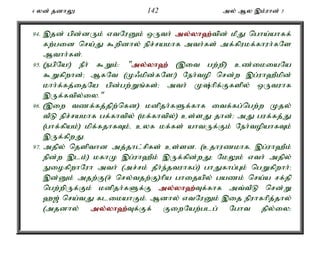 4 லன் தனாலு 142 அல் ஆல இம்ரான் 3
94. இதன் பின்னரும் எவரேனும் ஒருவர் அல்லாஹ்வின் மீது பொய்யாகக்
கற்பனை செய்து கூறினால் நிச்சயமாக அவர்கள் அக்கிரமக்காரர்களே
ஆவார்கள்.
95. (நபியே!) நீர் கூறும்: "அல்லாஹ் (இவை பற்றி) உண்மையையே
கூறுகிறான்; ஆகவே (முஃமின்களே!) நேர்வழி சென்ற இப்ராஹீமின்
மார்க்கத்தையே பின்பற்றுங்கள்; அவர் முஷ்ரிக்குகளில் ஒருவராக
இருக்கவில்லை."
96. (இறை வணக்கத்திற்கென) மனிதர்களுக்காக வைக்கப்பெற்ற முதல்
வீடு நிச்சயமாக பக்காவில் (மக்காவில்) உள்ளது தான்; அது பரக்கத்து
(பாக்கியம்) மிக்கதாகவும், உலக மக்கள் யாவருக்கும் நேர்வழியாகவும்
இருக்கிறது.
97. அதில் தெளிவான அத்தாட்சிகள் உள்ளன. (உதாரணமாக, இப்ராஹீம்
நின்ற இடம்) மகாமு இப்ராஹீம் இருக்கின்றது; மேலும் எவர் அதில்
நுழைகிறாரோ அவர் (அச்சம் தீர்ந்தவராகப்) பாதுகாப்பும் பெறுகிறார்;
இன்னும் அதற்கு(ச் செல்வதற்கு)ரிய பாதையில் பயணம் செய்ய சக்தி
பெற்றிருக்கும் மனிதர்களுக்கு அல்லாஹ்வுக்காக அவ்வீடு சென்று
ஹஜ் செய்வது கடமையாகும். ஆனால் எவரேனும் இதை நிராகரித்தால்
(அதனால் அல்லாஹ்வுக்குக் குறையேற்படப் போவ தில்லை;